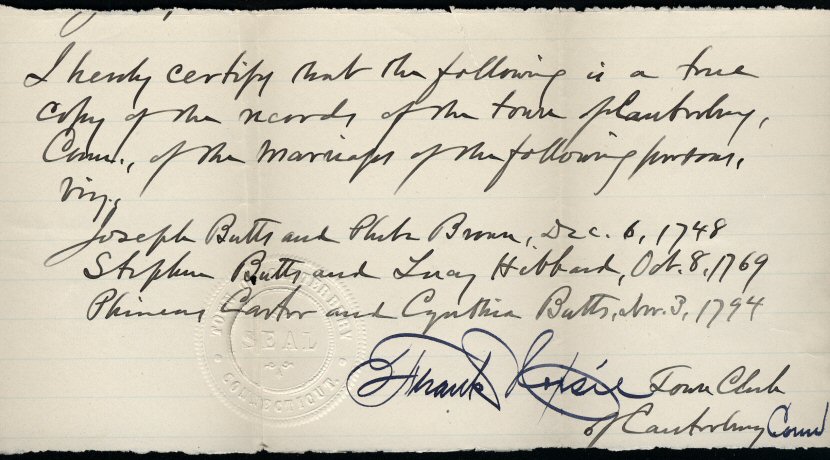 I hereby certify that the following is a true
copy of the records of the town of Canterbury,
Conn., of the marriages of the following persons,
viz.,
Joseph Butts and Phebe Brown, Dec. 6, 1748
Stephen Butts and Lucy Hibbard, Oct. 8, 1769
Phineas Carter and Cynthia Butts, Nov. 3, 1794
TOWN OF CANTERBURY
SEAL
CONNECTICUT
Frank Town Clerk
of Canterbury Conn